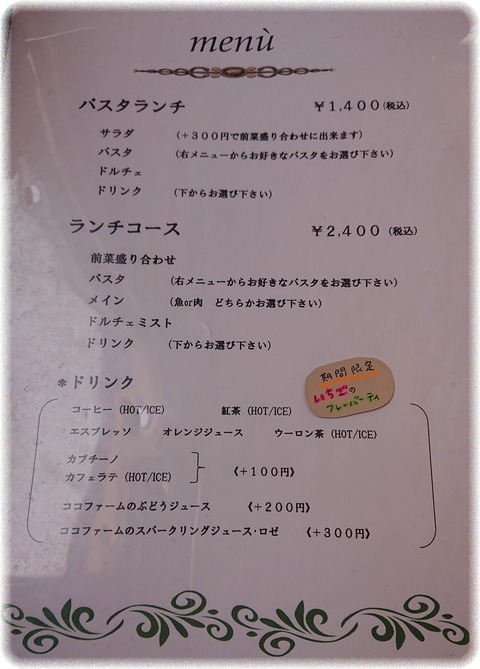 menù
パスタランチ ￥1,400(税込)
サラダ (＋300円で前菜盛り合わせに出来ます)
パスタ (右メニューからお好きなパスタをお選び下さい)
ドルチェ
ドリンク (下からお選び下さい)
ランチコース ￥2,400 (税込)
前菜盛り合わせ
パスタ (右メニューからお好きなパスタをお選び下さい)
メイン (魚or肉 どちらかお選び下さい)
ドルチェミスト
ドリンク (下からお選び下さい)
＊ドリンク
期間限定
いちごの
フレーバーティ
コーヒー (HOT/ICE) 紅茶 (HOT/ICE)
エスプレッソ オレンジジュース ウーロン茶 (HOT/ICE)
カプチーノ
カフェラテ (HOT/ICE) 《＋100円》
ココファームのぶどうジュース 《＋200円》
ココファームのスパークリングジュース・ロゼ 《＋300円》